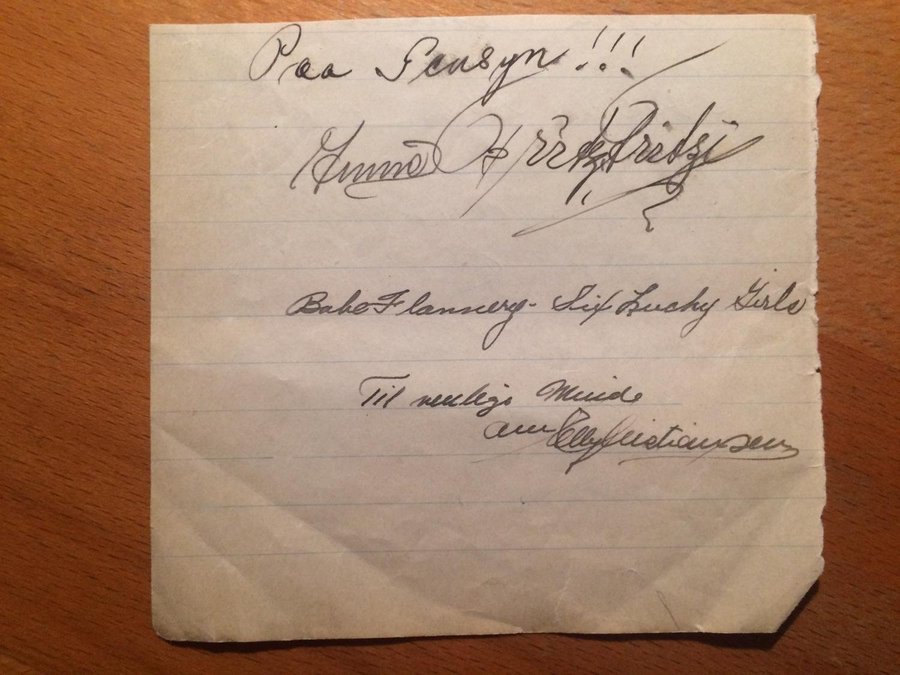 Paa Gensyn!!!
Babe Flannery - Six Lucky Girls
Til venlig Minde
om Elly Kristiansen